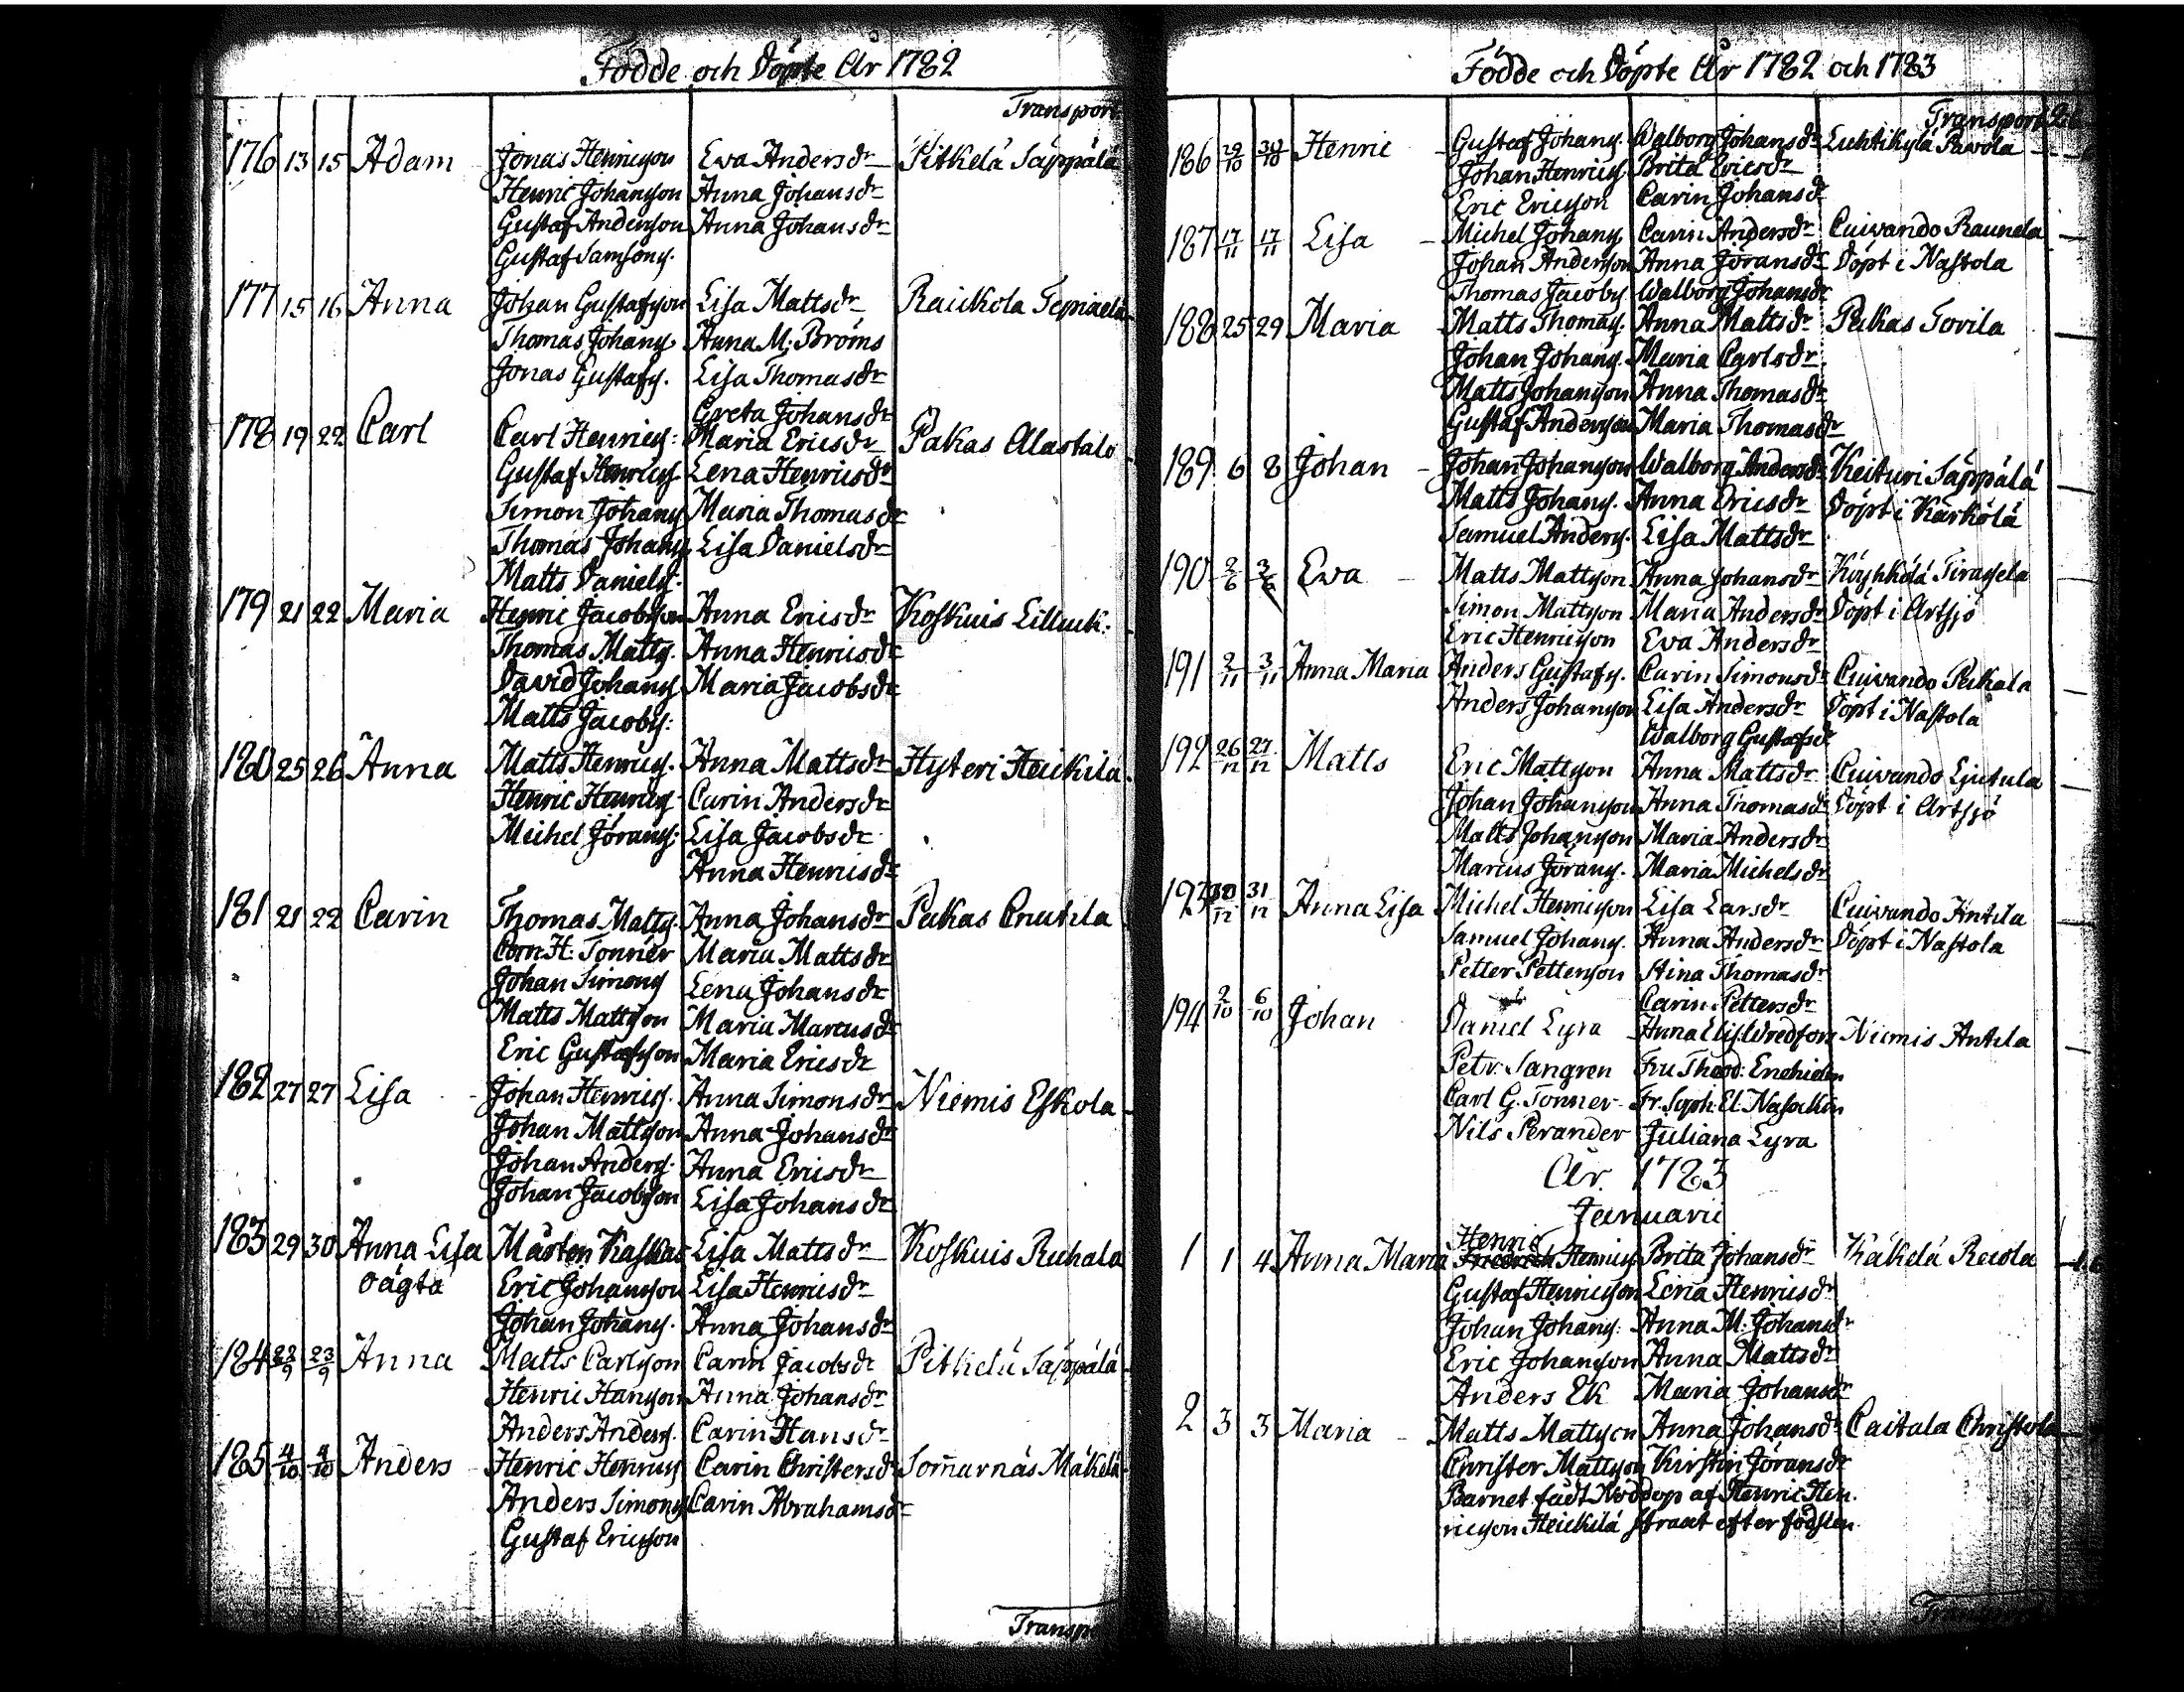 Födde och Döpte År 1782
Transport
176 13 15 Adam Jonas Henricson Eva Andersdr Pitkelä Säppälä
Henric Johanson Anna Johansdr
Gustaf Anderson Anna Johansdr
Gustaf Samsons.
177 15 16 Anna Johan Gustafson Lisa Mattsdr Raickola
Thomas Johans. Anna M: Broms
Jonas Gustafs. Lisa Thomasdr
Greta Johansdr
178 19 22 Carl Carl Henrics: Maria Ericsdr Pakas Alastalo
Gustaf Henrics. Lena Henricsdr
Simon Johans Maria Thomasdr
Thomas Johans Lisa Danielsdr
Matts Daniels.
179 21 22 Maria Henric Jacobson Anna Ericsdr Koskuis
Thomas Matts. Anna Henricsdr
David Johans Maria Jacobsdr
Matts Jacobs:
180 25 26 Anna Matts Henrics. Anna Mattsdr Hyteri Heickilä
Henric Henrics. Carin Andersdr
Meihel Jörans: Lisa Jacobsdr
Anna Henricsdr
181 21 22 Carin Thomas Matts. Anna Johansdr Pakas Cnutila
Corn H: Tonner Maria Mattsdr
Johan Simons Lena Johansdr
Matts Mattson Maria Marcusdr
Eric Gustafson Maria Ericsdr
182 27 27 Lisa Johan Henrics. Anna Simonsdr Niemis Eskola
Johan Mattson Anna Johansdr
Johan Anders. Anna Ericsdr
Johan Jacobson Lisa Johansdr
183 29 30 Anna Lisa Mårten Kaskas Lisa Mattsdr Koskuis Ruhala
oägta Eric Johanson Lisa Henricsdr
Johan Johans. Anna Johansdr
184 22/9 23/9 Anna Matts Carlson Carin Jacobsdr Pitkelä Säppälä
Henric Hanson Anna Johansdr
Anders Anders. Carin Hansdr
185 4/10 4/10 Anders Henric Henrics Carin Christersdr Som̄arnäs Mäkelä
Anders Simons Carin Abrahamsdr
Gustaf Ericson
Transp
Födde och Döpte År 1782 och 1783
Transport
186 29/10 30/10 Henric Gustaf Johans. Walborg Johansdr Luhtikylä Pavola
Johan Henrics. Brita Ericsdr
Eric Ericson Carin Johansdr
187 17/11 17/11 Lisa Michel Johans. Carin Andersdr Cuivando Raunela
Johan Anderson Anna Jöransdr Döpt i Nastola
Thomas Jacobs. Walborg Johansdr
188 25 29 Maria Matts Thomas. Anna Mattsdr Pakas Tovila
Johan Johans. Maria Carlsdr
Matts Johanson Anna Thomasdr
Gustaf Anderson Maria Thomasdr
189 6 8 Johan Johan Johanson Walborg Andersdr Keituri Säppälä
Matts Johans. Anna Ericsdr Döpt i Kärkölä
Samuel Anders. Lisa Mattsdr
190 2/6 3/6 Eva Matts Mattson Anna Johansdr
Simon Mattson Maria Andersdr Döpt i Artsjö
Eric Henricson Eva Andersdr
191 2/11 3/11 Anna Maria Anders Gustafs. Carin Simonsdr Cuivando Pekala
Anders Johanson Lisa Andersdr Döpt i Nastola
Walborg Gustafsdr
192 26/12 27/12 Matts Eric Mattson Anna Mattsdr Cuivando
Johan Johanson Anna Thomasdr Döpt i Artsjö
Matts Johanson Maria Andersdr
Marcus Jörans. Maria Michelsdr
193 30/12 31/12 Anna Lisa Michel Henricson Lisa Larsdr Cuivando Antila
Samuel Johans. Anna Andersdr Döpt i Nastola
Petter Petterson Stina Thomasdr
Carin Pettersdr
194 2/10 6/10 Johan Daniel Lyra Anna Elis. Wredfors Niemis Antila
Petr: Sangren Fru Theod: Enehielm
Carl G. Tonner Fr. Soph: El: Nasackin
Nils Perander Juliana Lyra
År. 1783
Januarii
Henric
1 1 4 Anna Maria Friedrich Henrics Brita Johansdr Käkelä Reiola
Gustaf Henricson Lena Henricsdr
Johan Johans: Anna M. Johansdr
Eric Johanson Anna Mattsdr
Anders Ek Maria Johansdr
2 3 3 Maria Matts Mattson Anna Johansdr Caitala Christola
Christer Mattson Kirstin Jöransdr
Barnet fådt Nöddop af Henric Hen-
ricson Heickilä straxt efter födslen